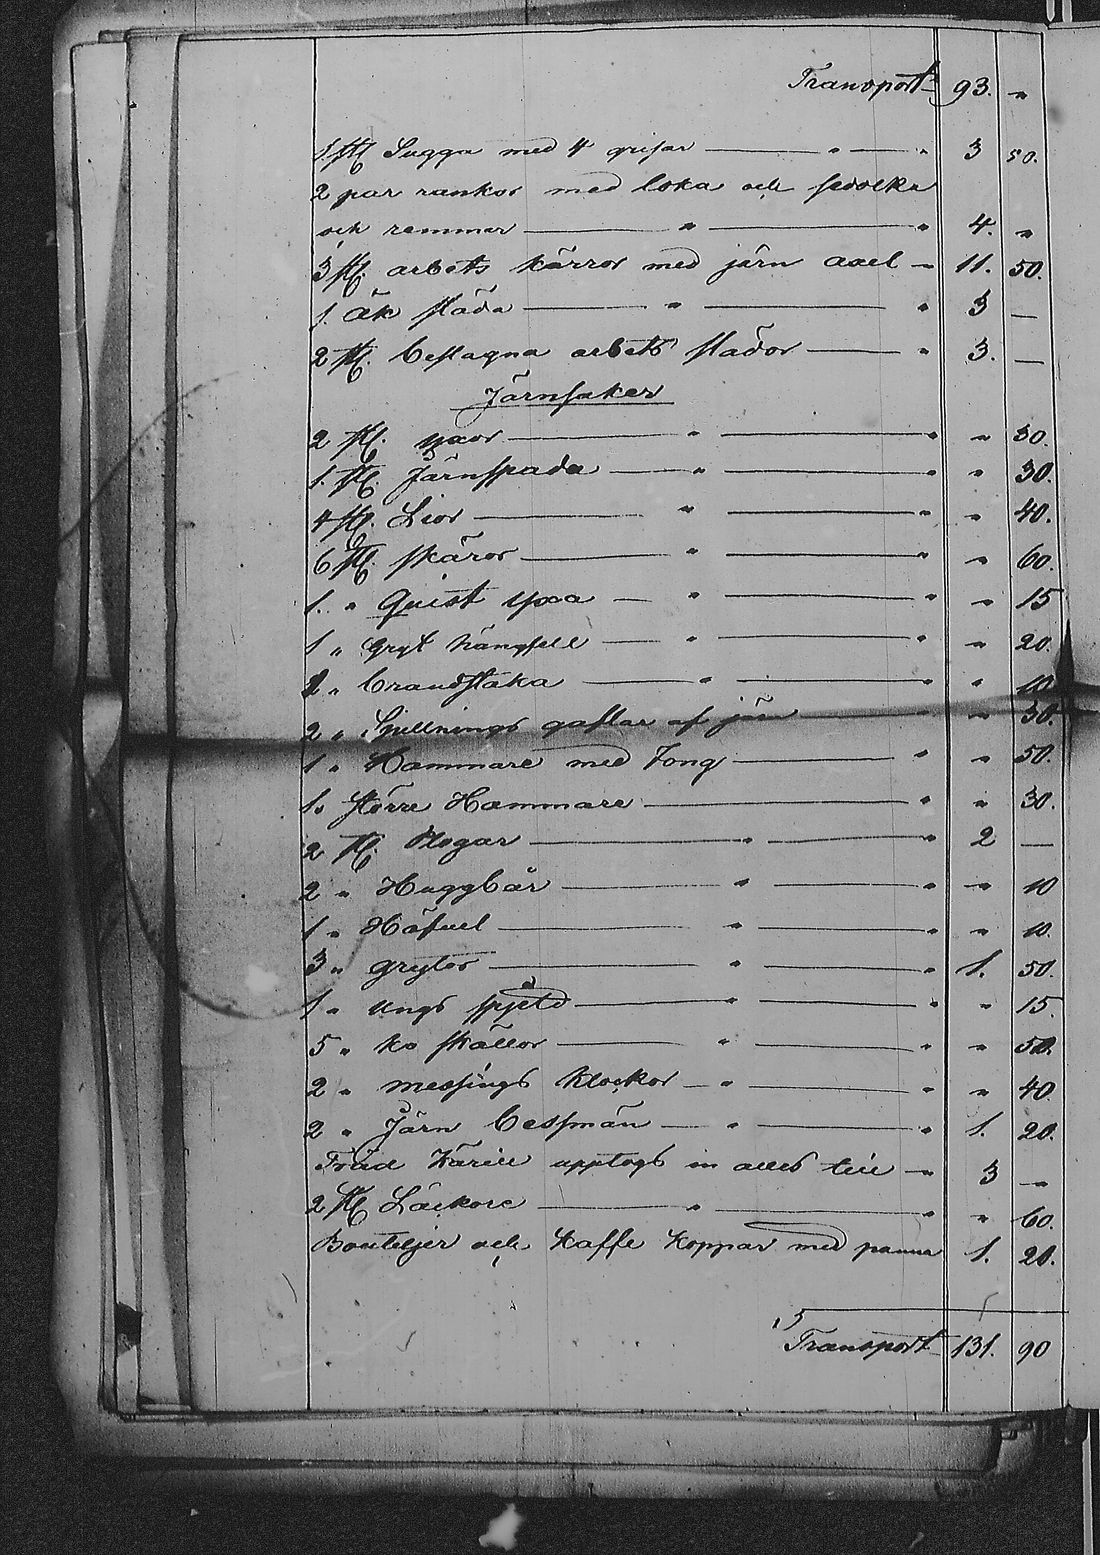 Transport 93. "
1 st Sugga med 4 grisar " " 3 50.
2 par rankor med loka och sedolka
och remmar " " 4. "
3 st. arbets kärror med järn axel " 11. 50.
1. Åk släda " " 3 —
2 st. beslagna arbets slädor " 3. —
Järnsaker
2 st. yxor " " " 30.
1. st. Järnspada " " " 30.
4 st. Lior " " " 40.
6 st. skäror " " " 60.
1. " Quist yxa " " " 15
1 " gryt hängsell " " " 20.
1 " brandstaka " " " 10
2 " gaflar af järn " " 30.
1 " Hammare med Tong " " 50.
1. större Hammare " " 30.
2 st. Plogar " " 2 —
2 " Huggbär " " " 10
1 " Häfvel " " " 10.
3 " grytor " " 1. 50.
1 " ungs spjeld " " " 15.
5 " ko skällor " " " 50.
2 " messings klockor " " " 40.
2 " Järn besmän " " 1. 20.
Träd Kärill upptogs in alles till " 3 "
2 st " " " 60.
Bouteljer och Kaffe Koppar med panna 1. 20.
Transport 131. 90